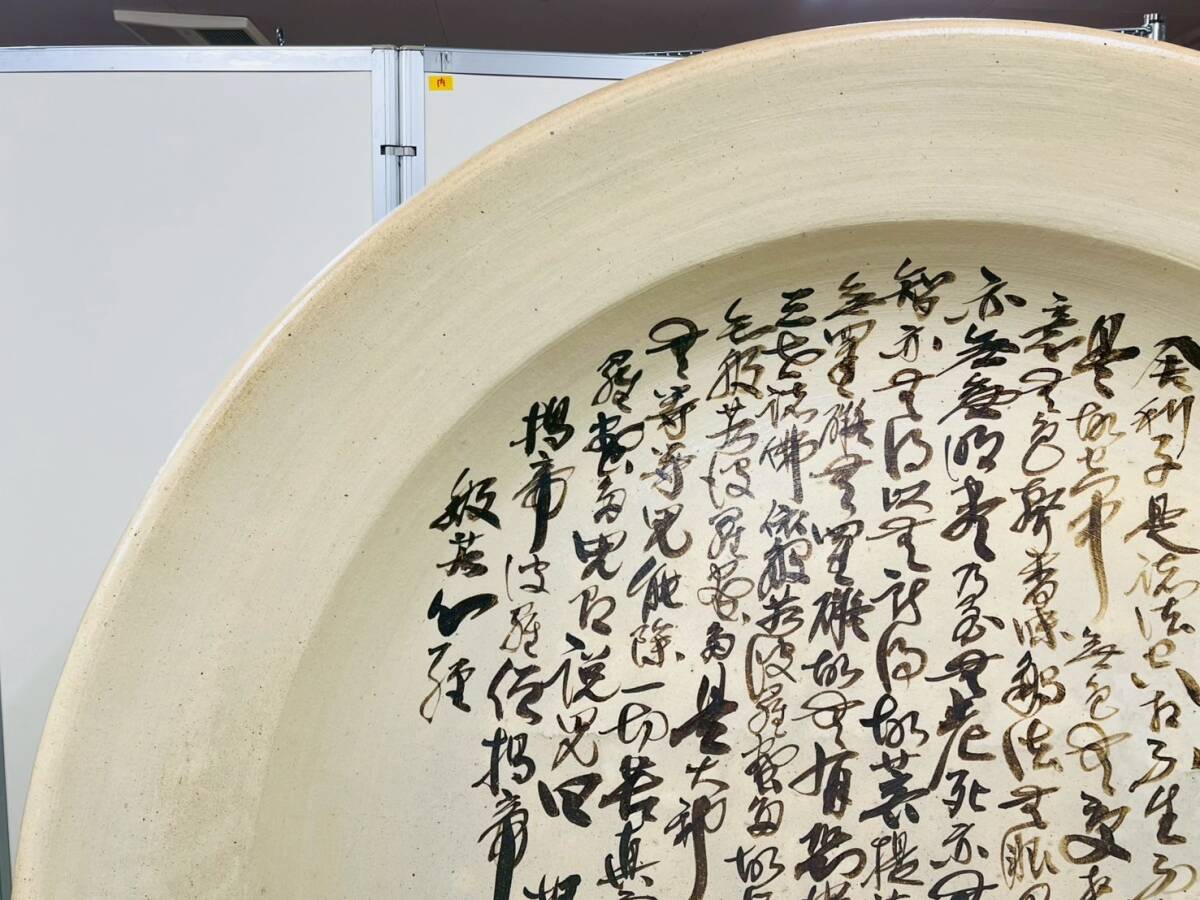 内
舍利子是諸法空相不生不
是故空中無色無受想
意無色聲香味觸法無眼界
亦無無明盡乃至無老死亦無
智亦無得以無所得故菩提薩
無罣礙無罣礙故無有恐怖
三世諸佛依般若波羅蜜多故得
知般若波羅蜜多是大神
無等等咒能除一切苦真
羅蜜多咒即說咒曰
揭帝波羅僧揭帝
般若心經